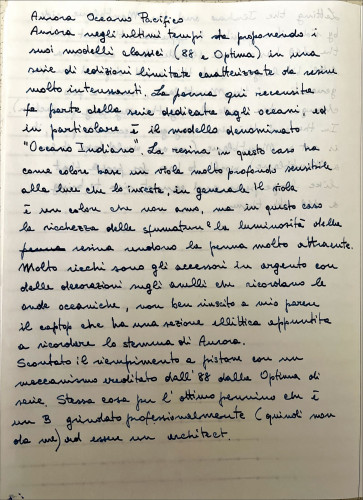 Aurora Oceano Pacifico
Aurora negli ultimi tempi sta proponendo i
suoi modelli classici (88 e Optima) in una
serie di edizioni limitate caratterizzate da resine
molto interessanti. La penna qui recensita
fa parte della serie dedicata agli oceani, ed
in particolare è il modello denominato
"Oceano Indiano". La resina in questo caso ha
come colore base un viola molto profondo sensibile
alla luce che lo investe, in generale il viola
è un colore che non amo, ma in questo caso
la ricchezza delle sfumature e la luminosità della
penna resina rendono la penna molto attraente.
Molto ricchi sono gli accessori in argento con
delle decorazioni sugli anelli che ricordano le
onde oceaniche, non ben riuscito a mio parere
il captop che ha una sezione ellittica appuntita
a ricordare lo stemma di Aurora.
Scontato il riempimento a pistone con un
meccanismo ereditato dall'88 dalla Optima di
serie. Stessa cosa per l'ottimo pennino che è
un B grindato professionalmente (quindi non
da me) ad essere un architect.